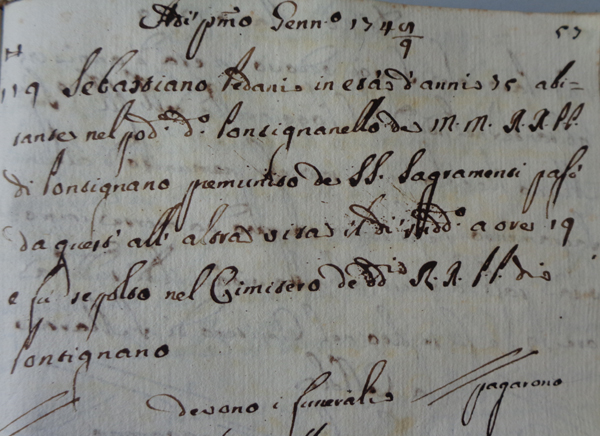 Adi pmo Genno 1749
9
57
119 Sebastiano Pedani in età d'anni 75 abi=
tante nel pode do Consignanello de M. M. R. R. PP.
di Consignano premunito de SS. Sagramenti passò
da quest' all' altra vita il dì sudo a ore 19
e fu sepolto nel Cimitero de ddi R. R. PP. di
Consignano
devono i funerali pagarono